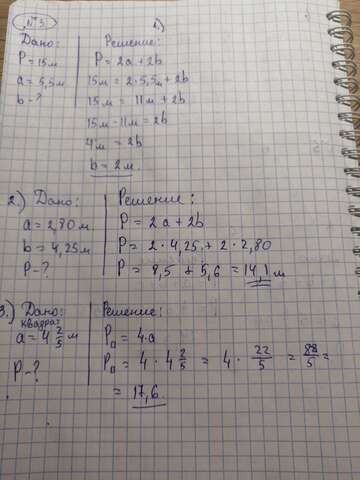 №3
1.)
Дано: Решение:
P = 15м P = 2a + 2b
a = 5,5м 15м = 2·5,5м + 2b
b - ? 15м = 11м + 2b
15м - 11м = 2b
4м = 2b
b = 2м.
2.) Дано: Решение:
a = 2,80м P = 2a + 2b
b = 4,25м P = 2 · 4,25 + 2 · 2,80
P - ? P = 8,5 + 5,6 = 14,1 м
3.) Дано: Решение:
квадрат
a = 4 2/5 м P□ = 4·a
P - ? P□ = 4 · 4 2/5 = 4 · 22/5 = 88/5 =
= 17,6.